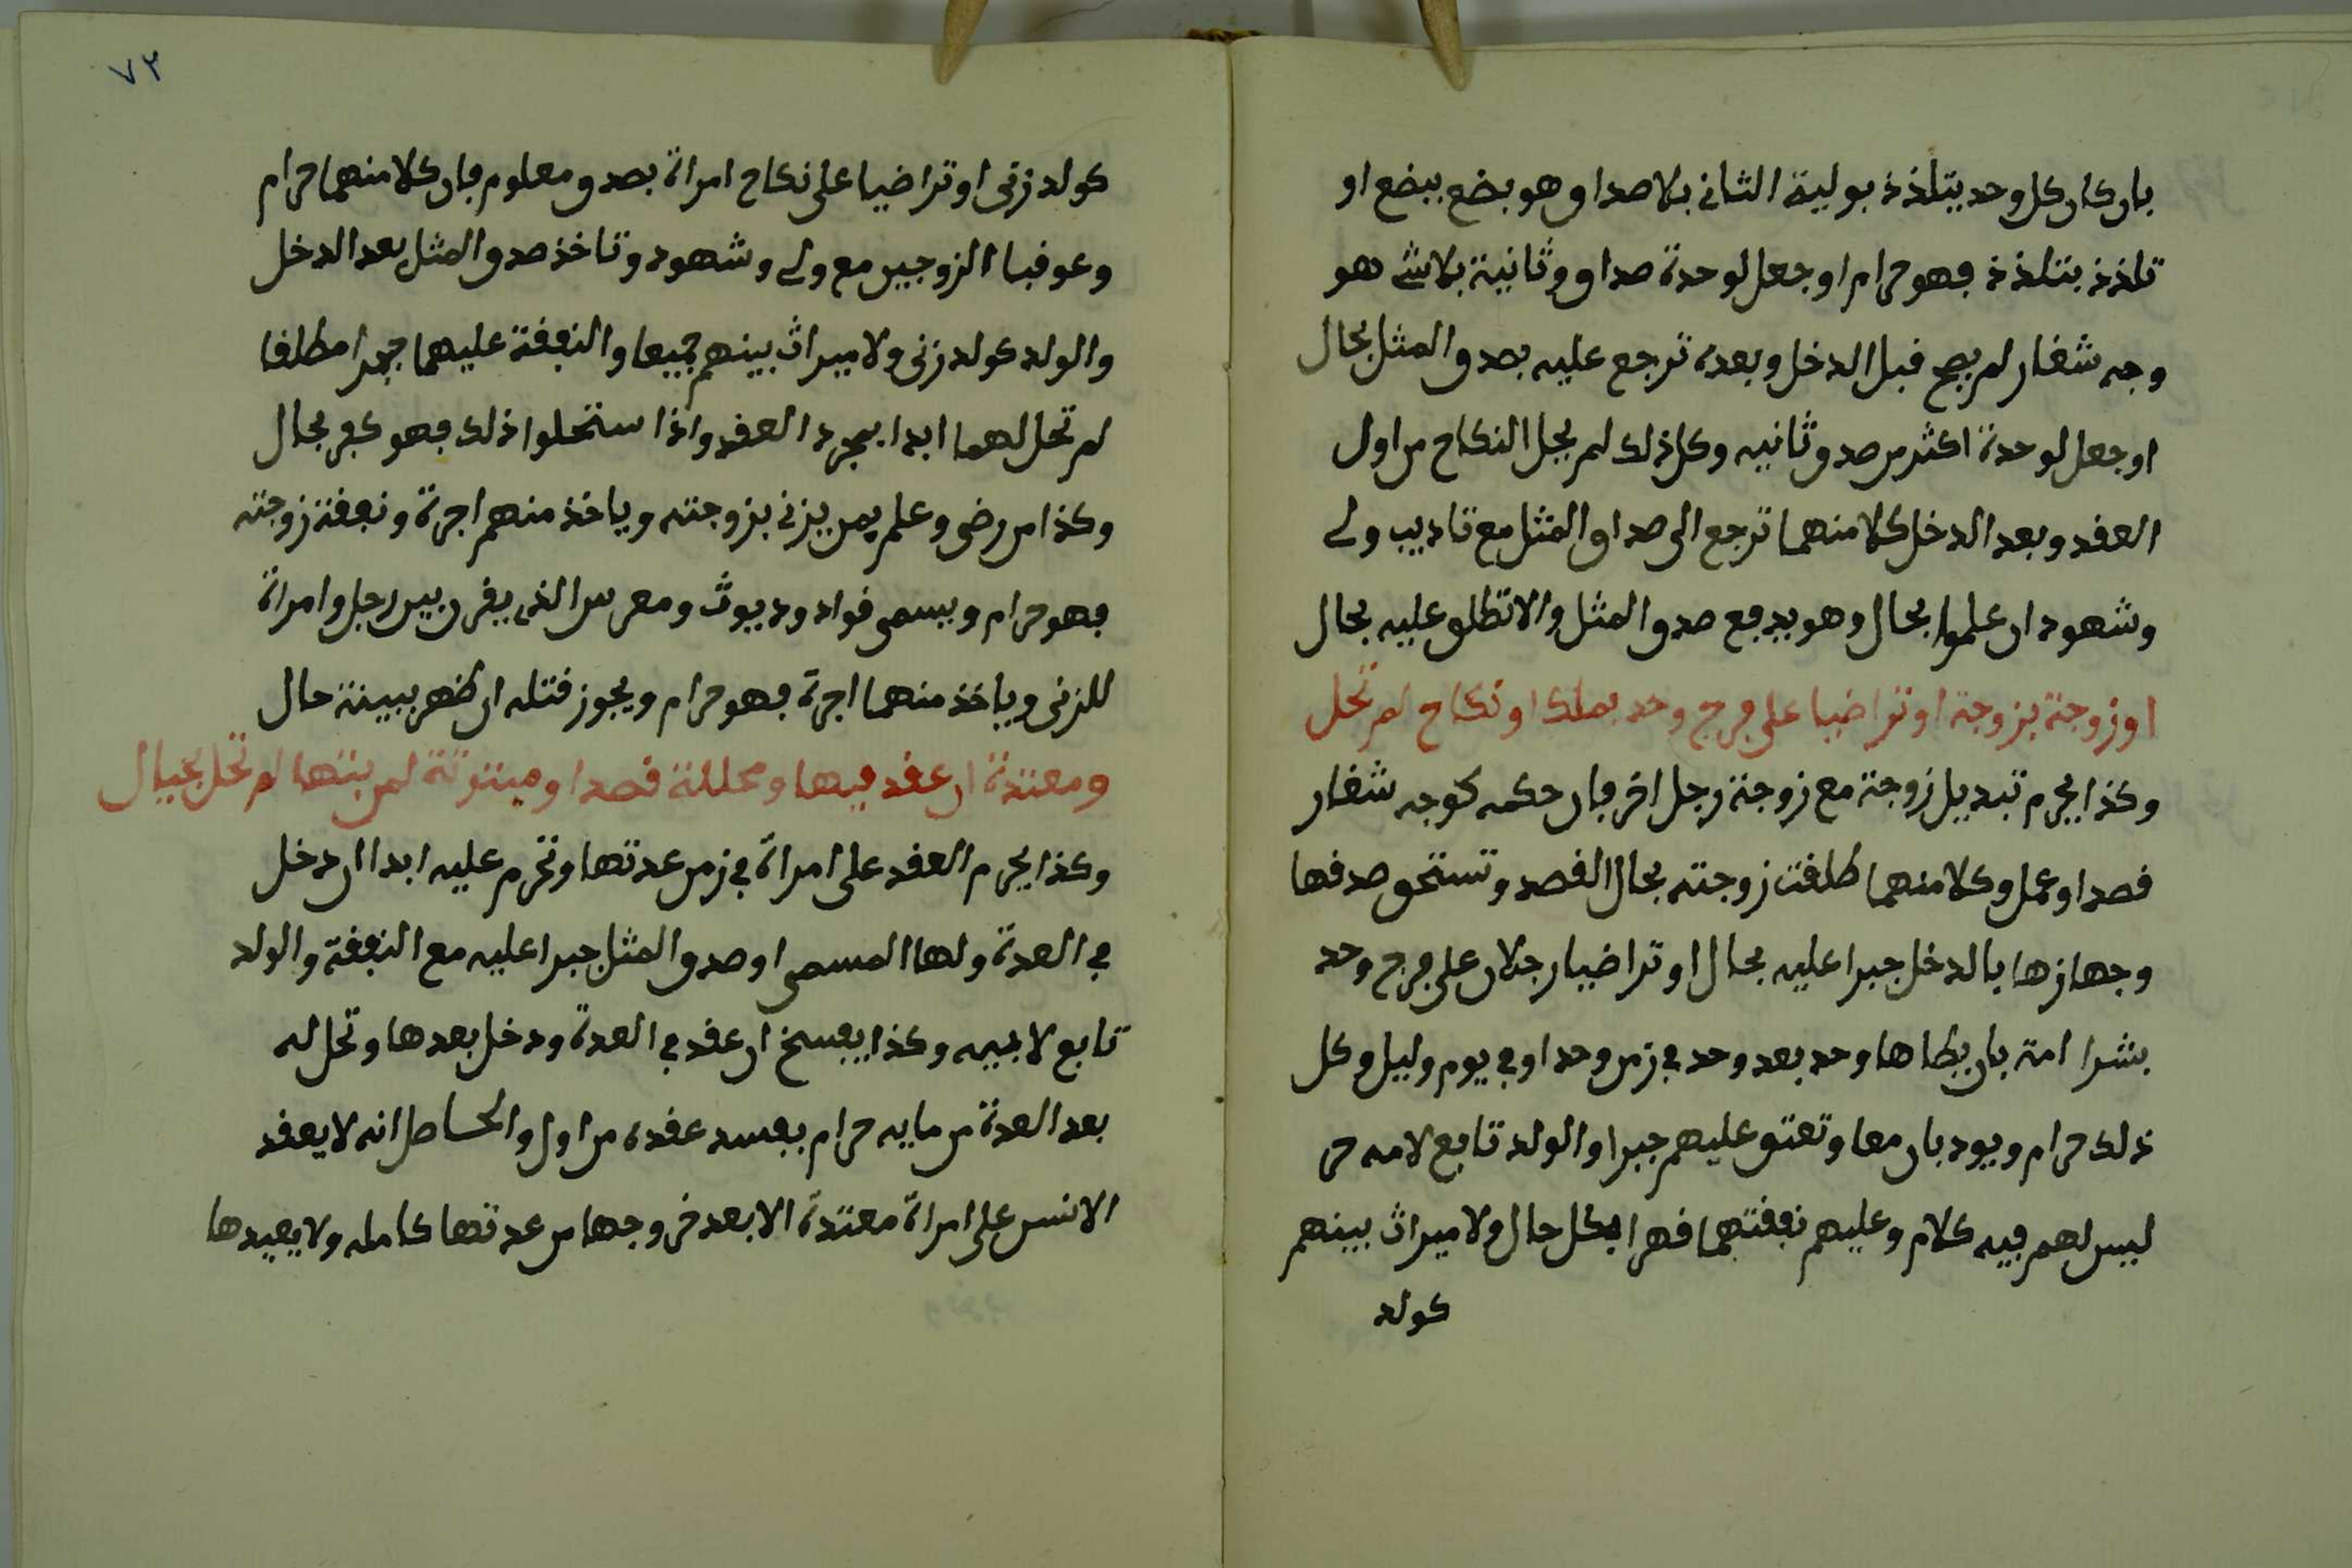 بان كان كل وحد يتلذذ بولية الثاني بلا صداق وهو بضع ببضع او
تلذذ بتلذذ فهو حرام او جعل لوحدة صداق وثانية بلا شے هو
وجه شغار لم يصح قبل الدخل وبعده ترجع عليه بصدق المثل بحال
او جعل لوحدة اكثر من صدق ثانيه وكل ذلك لم يحل النكاح من اول
العقد وبعد الدخل كلا منهما ترجع الى صداق المثل مع تاديب ولے
وشهود ان علموا بحال وهو يدفع صدق المثل والا تطلق عليه بحال
او زوجة بزوجة او تراضيا على فرج وحد بملك او نكاح لم تحل
وكذا يحرم تبديل زوجة مع زوجة رجل اخر فان حكمه كوجه شغار
قصدا وعمل وكلا منهما طلقت زوجته بحال القصد وتستحق صدقها
وجهازها بالدخل جبرا عليه بحال او تراضيا رجلان على فرج وحد
بشرا امة بان يطاها وحد بعد وحد في زمن وحد او في يوم وليل وكل
ذلك حرام ويودبان معا وتعتق عليهم جبرا والولد تابع لامه حر
ليس لهم فيه كلام وعليهم نفقتهما قهرا بكل حال ولا ميراث بينهم
كولد
٧٣
كولد زنى او تراضيا على نكاح امراة بصدق معلوم فان كلا منهما حرام
وعوقبا الزوجين مع ولے وشهود وتاخذ صدق المثل بعد الدخل
والولد كولد زنى ولا ميراث بينهم جميعا والنفقة عليهما جبرا مطلقا
لم تحل لهما ابدا بمجرد العقد واذا ستحلوا ذلك فهو كفر بحال
وكذا من رضى وعلم بمن يزني بزوجته وياخذ منهم اجرة ونفقة زوجته
فهو حرام ويسمى قواد وديوث ومعرس الذي يقرن بين رجل وامراة
للزنى وياخذ منهما اجرة فهو حرام ويجوز قتله ان ظهر ببينة حال
ومعتدة ان عقد فيها ومحللة قصدا ومبتوتة لمن بتها لم تحل بحال
وكذا يحرم العقد على امراة في زمن عدتها وتحرم عليه ابدا ان دخل
في العدة ولها المسمى او صدق المثل جبرا عليه مع النفقة والولد
تابع لابيه وكذا يفسخ ان عقد في العدة ودخل بعدها وتحل له
بعد العدة من مايه حرام بفسد عقده من اول والحاصل انه لا يعقد
الانس على امراة معتدة الا بعد خروجها من عدتها كامله ولا يعيدها